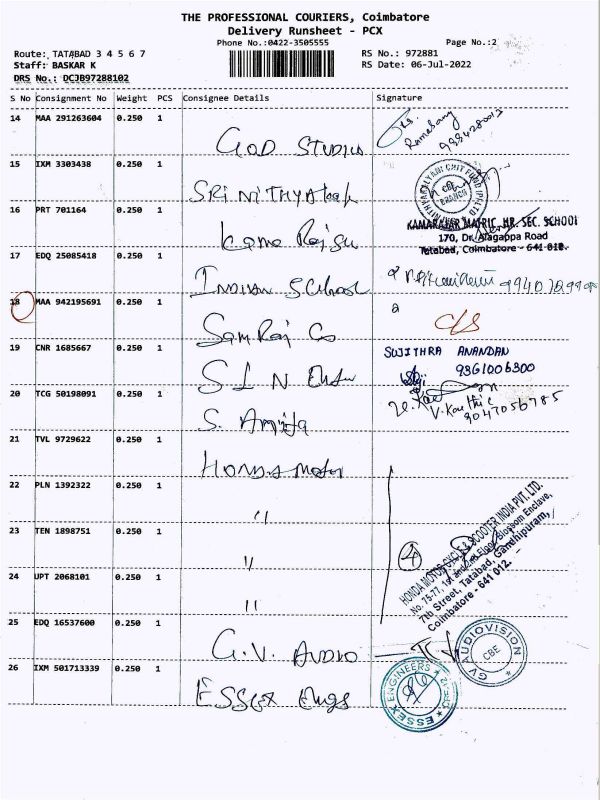 THE PROFESSIONAL COURIERS, Coimbatore
Delivery Runsheet - PCX
Phone No.:0422-3505555
Page No.:2
Route: TATABAD 3 4 5 6 7
Staff: BASKAR K
DRS No.: DCJB97288102
RS No.: 972881
RS Date: 06-Jul-2022
S No Consignment No Weight PCS Consignee Details Signature
14 MAA 291263604 0.250 1 GOD STUDIO
Ramasamy
15 IXM 3303438 0.250 1 SRI NITHYA
BRANCH
16 PRT 701164 0.250 1
KAMARAJAR MATRIC. HR. SEC. SCHOOL
170, Dr. Alagappa Road
Tatabad, Coimbatore - 641 012.
17 EDQ 25085418 0.250 1 INDIAN SCHOOL
18 MAA 942195691 0.250 1 Sam Raj Co
C/S
19 CNR 1685667 0.250 1 S L N
SUJITHRA ANANDAN
9361006300
20 TCG 50198091 0.250 1 S.
V. Kauthic
9047056785
21 TVL 9729622 0.250 1 HONDA MOTOR
22 PLN 1392322 0.250 1 "
23 TEN 1898751 0.250 1 "
24 UPT 2068101 0.250 1 "
4
HONDA MOTORCYCLE & SCOOTER INDIA PVT. LTD.
No. 75-77, 1st and 2nd Floor, Blossom Enclave,
7th Street, Tatabad, Gandhipuram,
Coimbatore - 641 012.
25 EDQ 16537600 0.250 1 G.V. AUDIO
GV AUDIOVISION
CBE
26 IXM 501713339 0.250 1 ESSEX Engs
ESSEX ENGINEERS